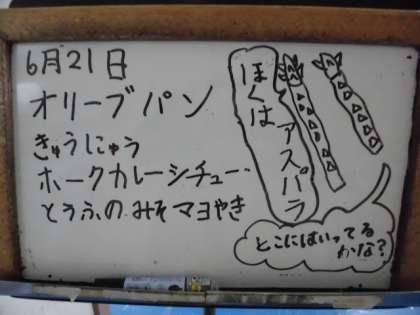 6月21日
オリーブパン
きゅうにゅう
ホークカレーシチュー
とうふのみそマヨやき
ほくは
アスパラ
とこにはいってる
かな?